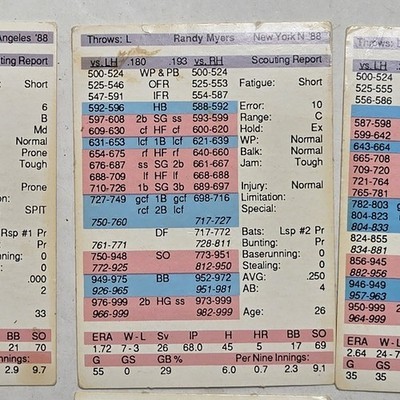 Angeles '88
Scouting Report
Short
6
B
Md
Normal
Prone
Tough
Prone
SPIT
Rsp #1 Pr
Pr
0
0
.000
2
33
BB SO
21 70
Innings:
2.9 9.7
Throws: L Randy Myers New York N '88
vs. LH .180 .193 vs. RH Scouting Report
500-524 WP & PB 500-524
525-546 OFR 525-553 Fatigue: Short
547-591 IFR 554-587
592-596 HB 588-592 Error: 10
597-608 2b SG ss 593-599 Range: C
609-630 cf HF cf 600-630 Hold: Ex
631-653 lcf 1B lcf 631-639 WP: Normal
654-675 rf HF rf 640-660 Balk: Normal
676-687 ss SG 2b 661-667 Jam: Tough
688-709 lf HF lf 668-688
710-726 1b SG 3b 689-697 Injury: Normal
727-749 gcf 1B gcf 698-716 Limitation:
rcf 2B lcf Special:
750-760 717-727
DF 717-772 Bats: Lsp #2 Pr
761-771 728-811 Bunting: Pr
750-948 SO 773-951 Baserunning: 0
772-925 812-950 Stealing: 0
949-975 BB 952-972 AVG: .250
926-965 951-981 AB: 4
976-999 2b HG ss 973-999
966-999 982-999 Age: 26
ERA W - L Sv IP H HR BB SO
1.72 7 - 3 26 68.0 45 5 17 69
G GS GB % Per Nine Innings:
55 0 29 6.0 0.7 2.3 9.1
Throws:
vs. LH
500-524
525-555
556-586
587-598
599-642
643-664
665-708
709-720
721-764
765-781
782-803
804-823
804-833
824-855
834-881
856-945
882-956
946-949
957-963
950-999
964-999
ERA W
2.64 24 - 7
G GS
35 35